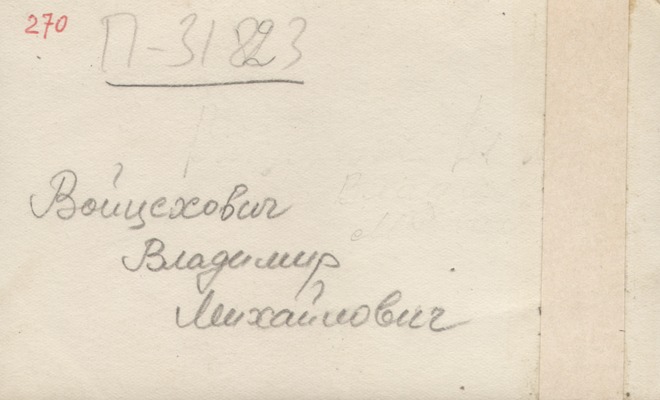 270
П-31823
Войцехович
Владимир
Михайлович